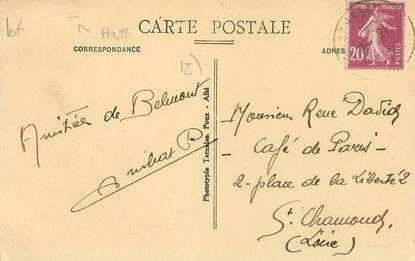 lot
FENTE
CARTE POSTALE
CORRESPONDANCE
ADRES
20
12)
Amitiés de Belmont
Phototypie Tarnaise, Poux - Albi
Monsieur René David
Café de Paris
2 - place de la Liberté 2
St Chamond
(Loire)